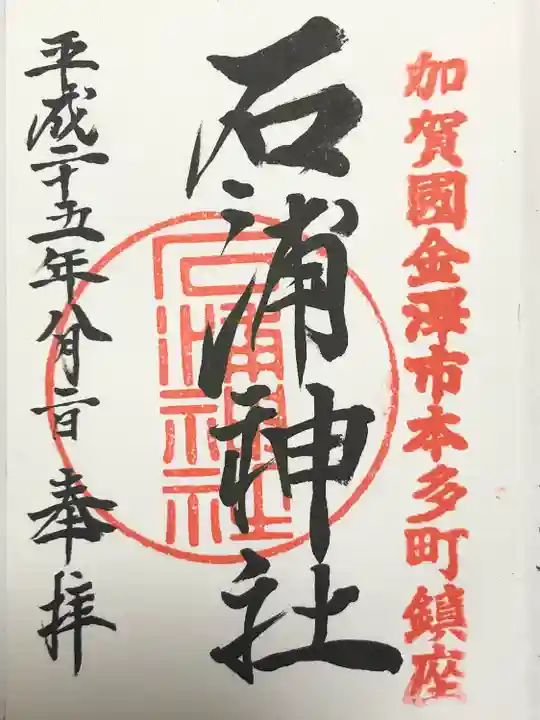 加賀國金澤市本多町鎮座
石浦神社
石浦神社
平成二十五年八月二日 奉拝